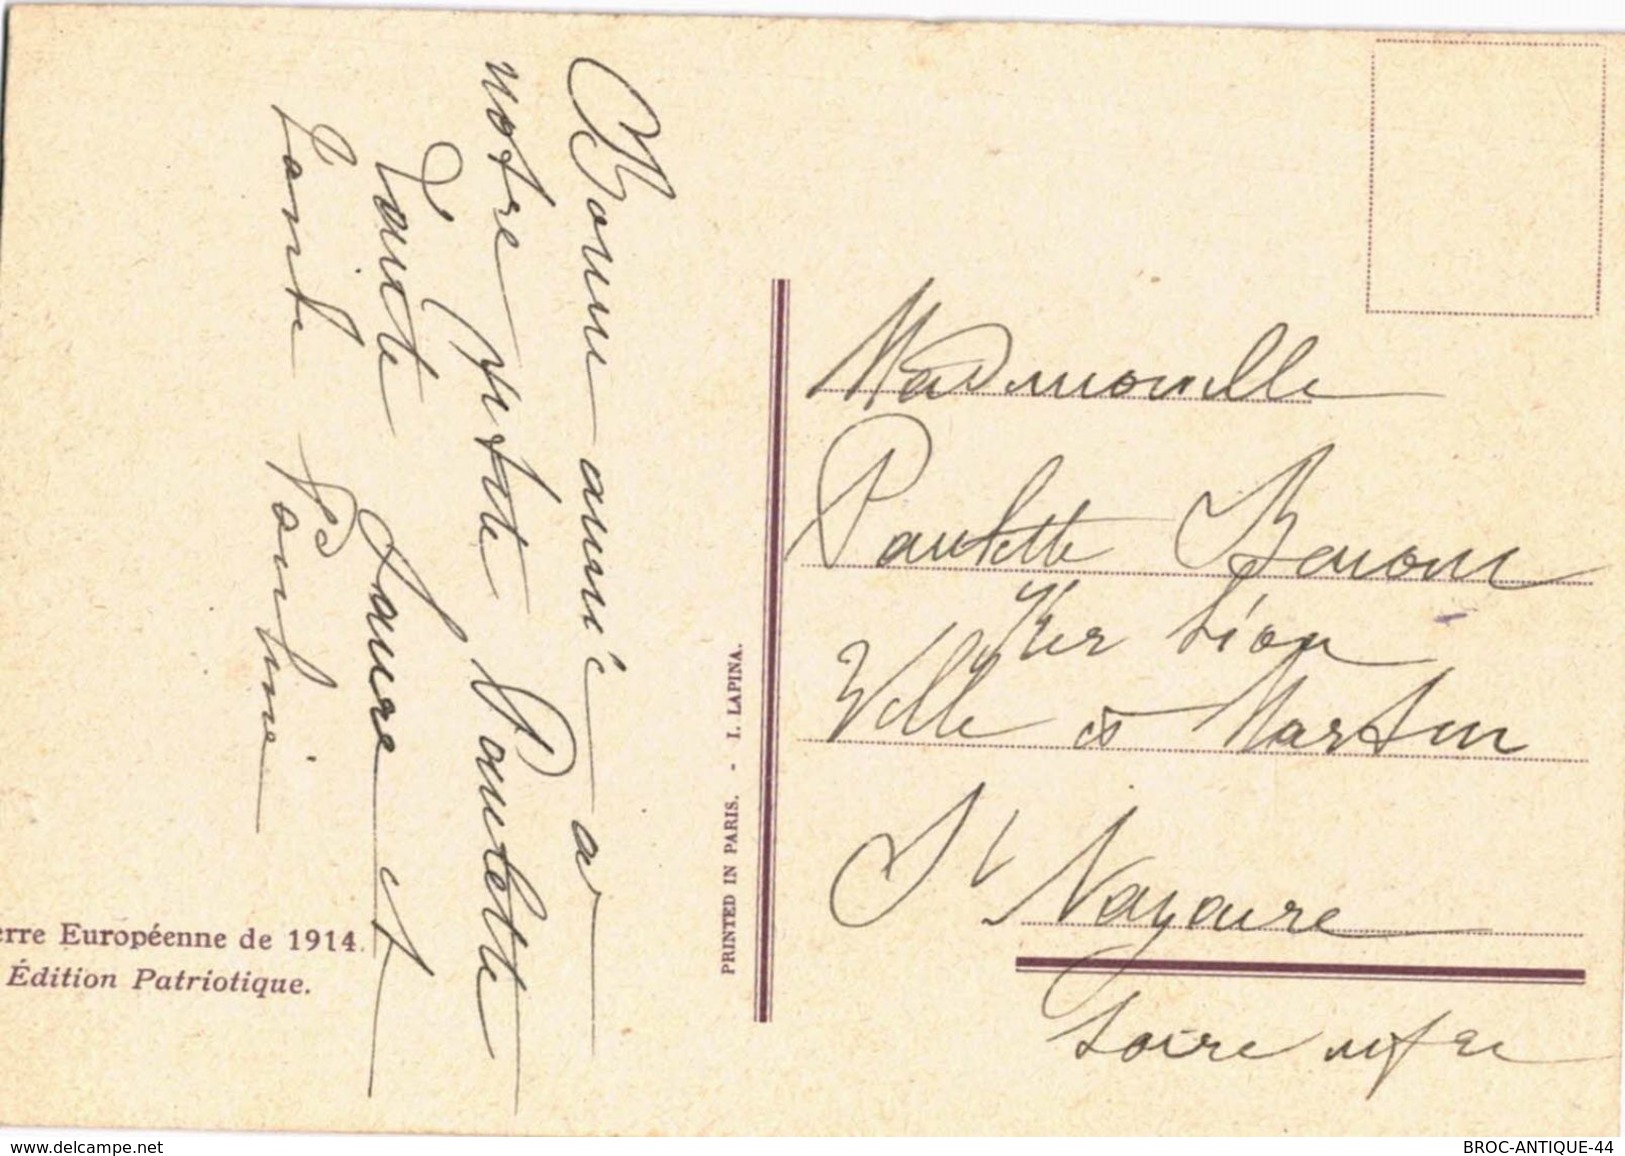 Bonne année à
notre petite Paulette
Tante Laure et
Tante Pauline
erre Européenne de 1914.
Édition Patriotique.
PRINTED IN PARIS. - I. LAPINA.
Mademoiselle
Paulette Benom
Ker Lion
Ville ès Martin
St Nazaire
Loire infre
BROC-ANTIQUE-44